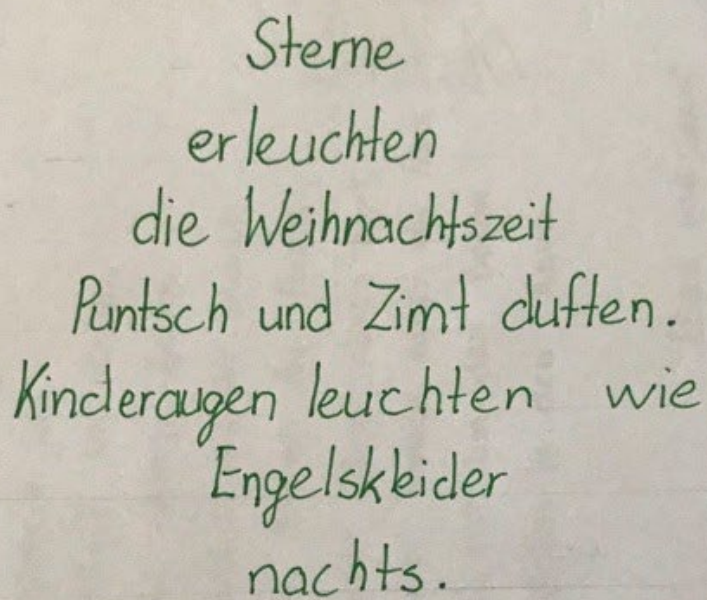 Sterne
erleuchten
die Weihnachtszeit
Puntsch und Zimt duften.
Kinderaugen leuchten wie
Engelskleider
nachts.